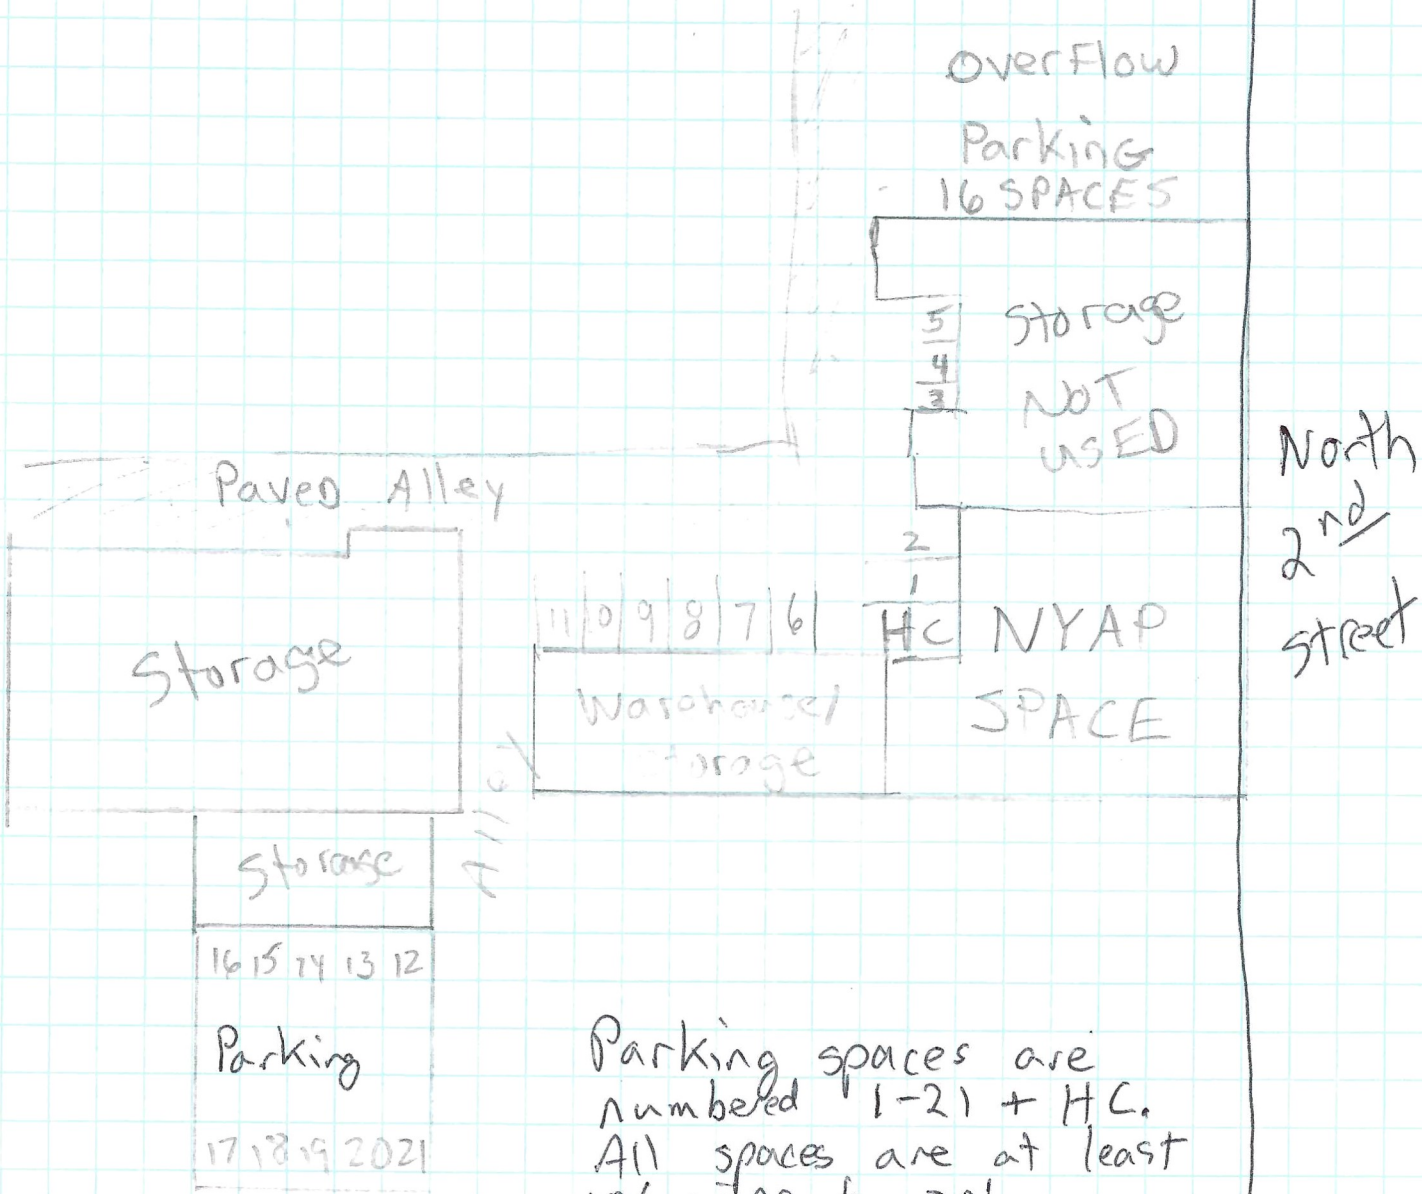 OverFlow
Parking
16 SPACES
5
4
3
Storage
NOT
USED
North
2nd
street
Paved Alley
2
1
HC
11 10 9 8 7 6
NYAP
SPACE
Storage
Warehouse/
storage
Alley
Storage
16 15 14 13 12
Parking
17 18 19 20 21
Parking spaces are
numbered 1-21 + HC.
All spaces are at least